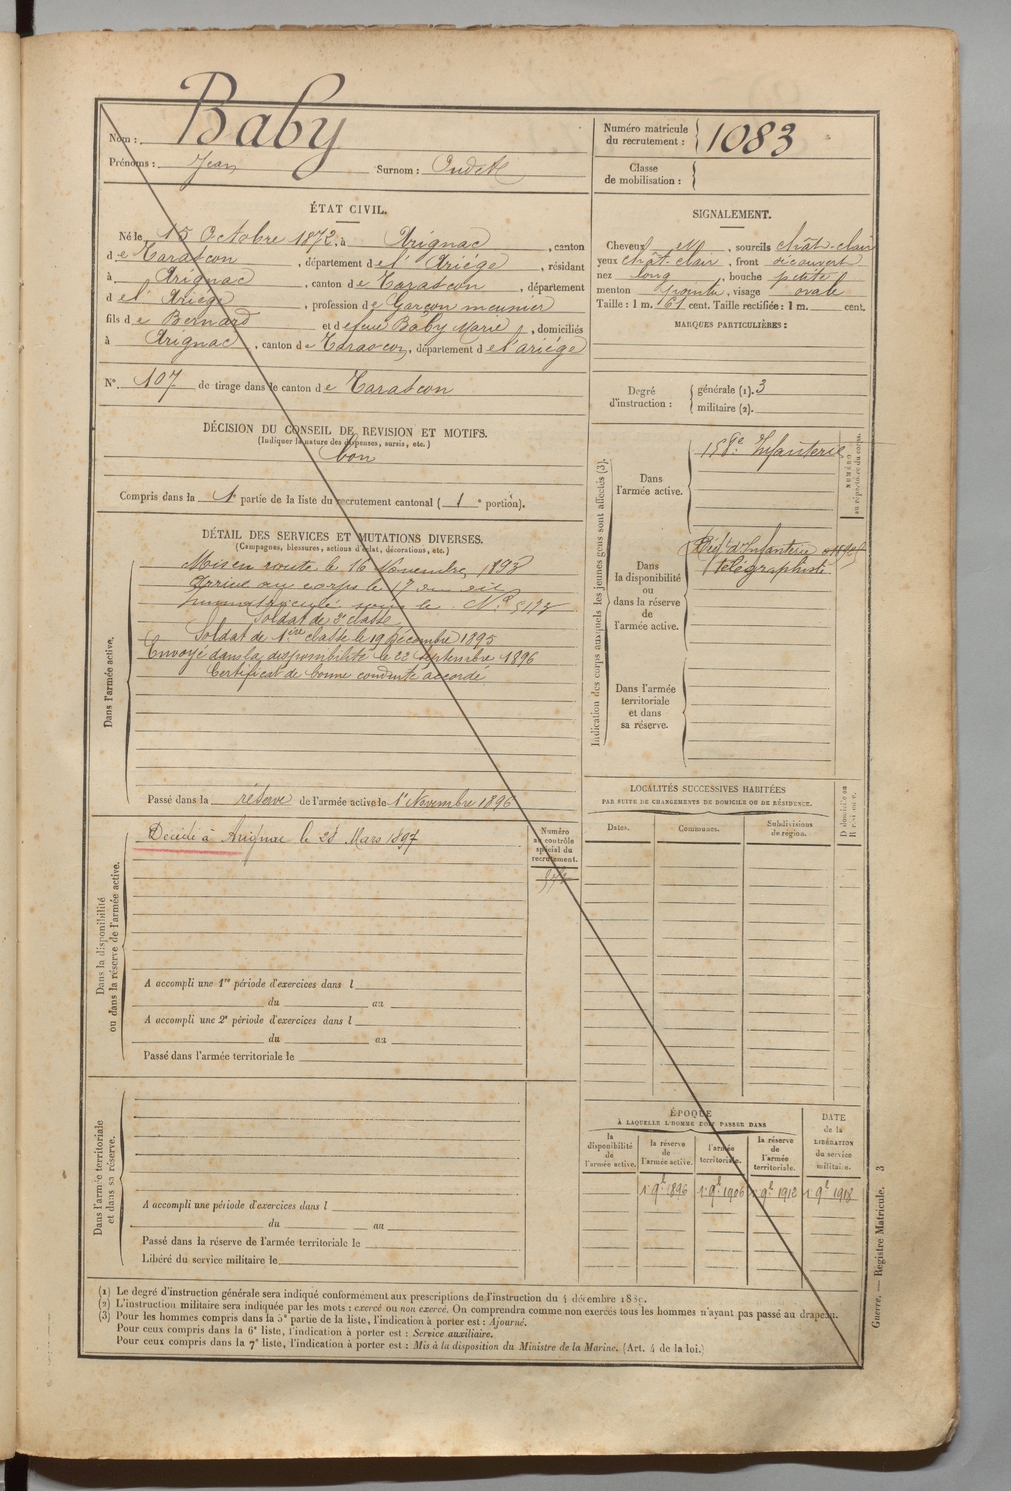 Nom : Baby
Prénoms : Jean Surnom :
Numéro matricule du recrutement : 1083
Classe de mobilisation :
ÉTAT CIVIL.
Né le 15 Octobre 1872, à Arignac, canton
de Tarascon, département de l'Ariège, résidant
à Arignac, canton de Tarascon, département
de l'Ariège, profession de Garçon meunier
fils de Bernard et de feue Baby Marie, domiciliés
à Arignac, canton de Tarascon, département de l'ariége
N° 107 de tirage dans le canton de Tarascon
DÉCISION DU CONSEIL DE REVISION ET MOTIFS.
(Indiquer la nature des dispenses, sursis, etc.)
bon
Compris dans la 1e partie de la liste du recrutement cantonal ( 1 e portion).
SIGNALEMENT.
Cheveux , sourcils chât-clair
yeux chât. clair, front découvert
nez long, bouche petite
menton pointu, visage ovale
Taille : 1 m. 61 cent. Taille rectifiée : 1 m. cent.
MARQUES PARTICULIÈRES :
Degré d'instruction : générale (1). 3
militaire (2).
DÉTAIL DES SERVICES ET MUTATIONS DIVERSES.
(Campagnes, blessures, actions d'éclat, décorations, etc.)
Dans l'armée active.
Mis en route le 16 Novembre 1893
Arrivé au corps le 17 du dit
Immatriculé sous le N°
Soldat de 2e classe
Soldat de 1ère classe le 19 décembre 1895
Envoyé dans la disponibilité le 22 Septembre 1896
Certificat de bonne conduite accordé
Passé dans la réserve de l'armée active le 1er Novembre 1896
Indication des corps auxquels les jeunes gens sont affectés (3).
NUMÉRO au répertoire du corps.
Dans l'armée active.
Infanterie
Dans la disponibilité ou dans la réserve de l'armée active.
d'Infanterie
télégraphiste
Dans l'armée territoriale et dans sa réserve.
LOCALITÉS SUCCESSIVES HABITÉES
PAR SUITE DE CHANGEMENTS DE DOMICILE OU DE RÉSIDENCE.
Dates. Communes. Subdivisions de région. D domicile ou R résidence.
Dans la disponibilité ou dans la réserve de l'armée active.
Numéro au contrôle spécial du recrutement.
Décédé à Arignac le 28 Mars 1897
A accompli une 1re période d'exercices dans l
du au
A accompli une 2e période d'exercices dans l
du au
Passé dans l'armée territoriale le
Dans l'armée territoriale et dans sa réserve.
A accompli une période d'exercices dans l
du au
Passé dans la réserve de l'armée territoriale le
Libéré du service militaire le
ÉPOQUE
À LAQUELLE L'HOMME DOIT PASSER DANS
la disponibilité de l'armée active.
la réserve de l'armée active.
l'armée territoriale.
la réserve de l'armée territoriale.
DATE de la LIBÉRATION du service militaire.
1er 9bre 1896 1er 9bre 1906 1er 9bre 1912 1er 9bre 1918
(1) Le degré d'instruction générale sera indiqué conformément aux prescriptions de l'instruction du 4 décembre
(2) L'instruction militaire sera indiquée par les mots : exercé ou non exercé. On comprendra comme non exercés tous les hommes n'ayant pas passé au drapeau.
(3) Pour les hommes compris dans la 5e partie de la liste, l'indication à porter est : Ajourné.
Pour ceux compris dans la 6e liste, l'indication à porter est : Service auxiliaire.
Pour ceux compris dans la 7e liste, l'indication à porter est : Mis à la disposition du Ministre de la Marine. (Art. 4 de la loi.)
Guerre. — Registre Matricule. 3